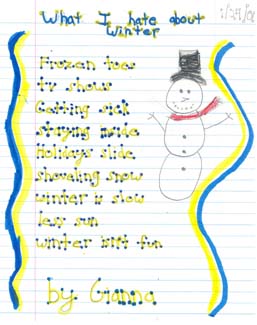 What I hate about
Winter
Frozen toes
tv shows
Getting sick
staying inside
holidays slide
shoveling snow
winter is slow
less sun
winter isn't fun
by Gianna